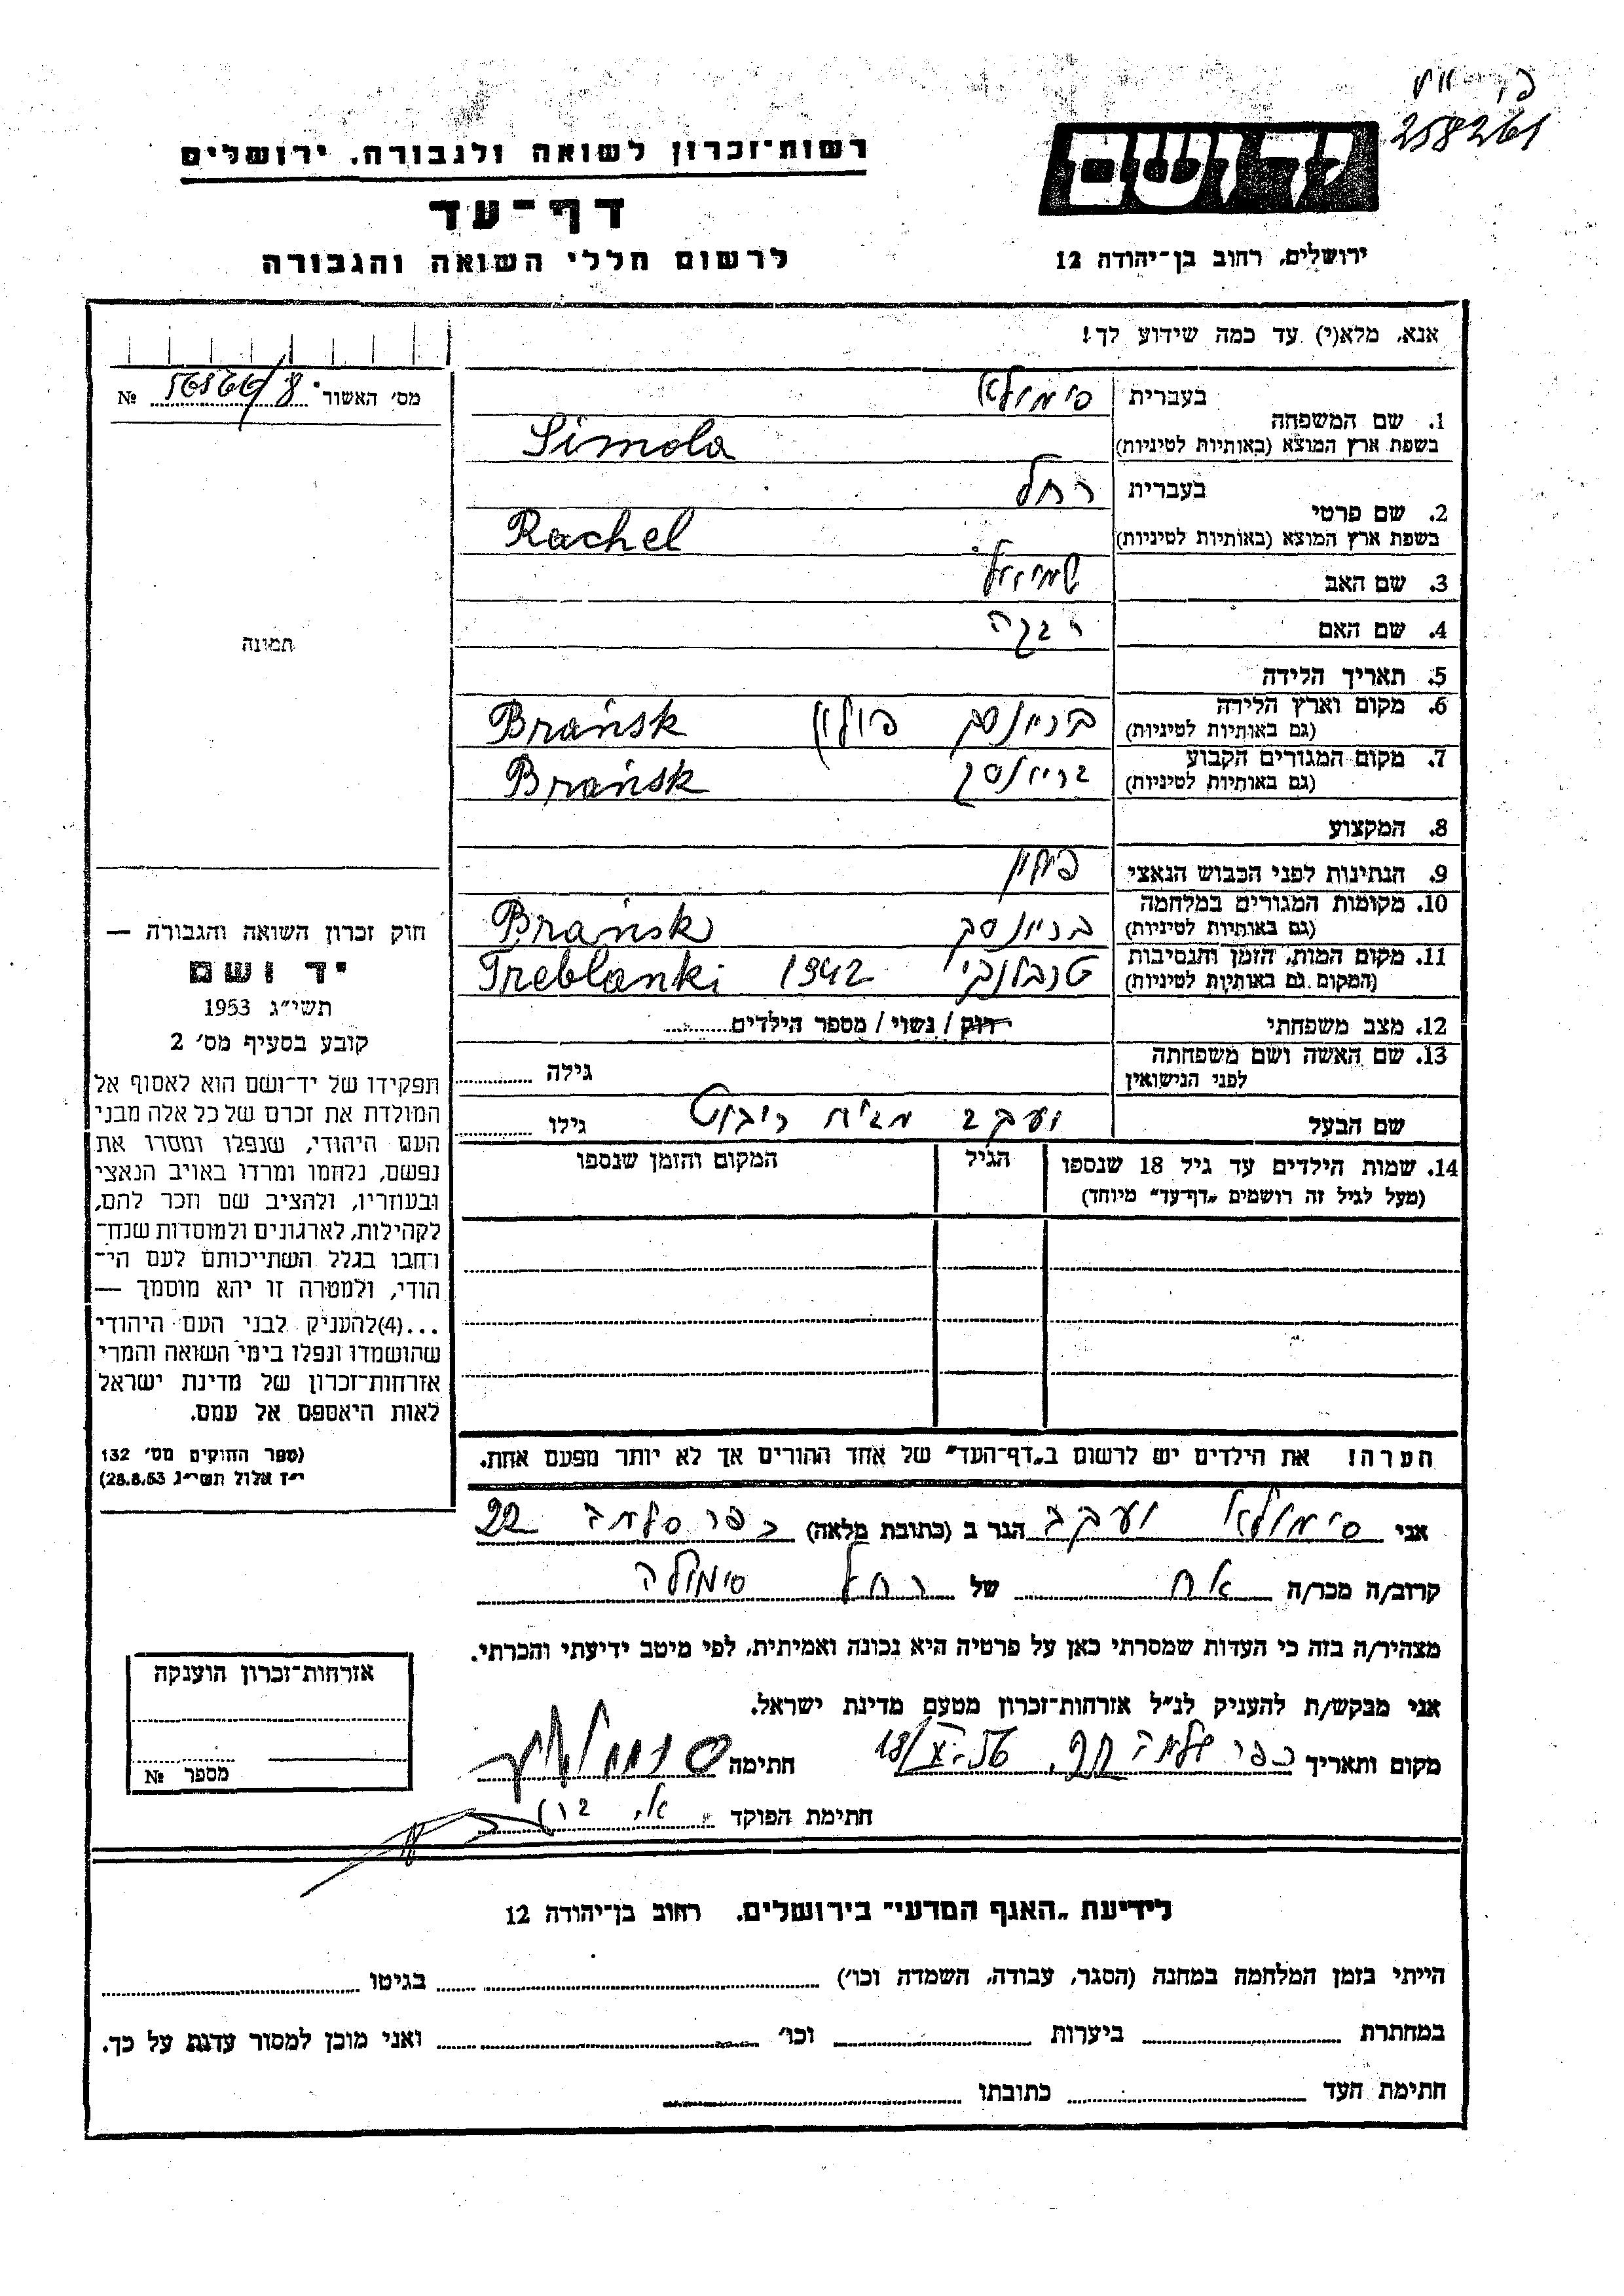 258261
יד ושם
רשות־זכרון לשואה ולגבורה, ירושלים
דף־עד
לרשום חללי השואה והגבורה
ירושלים, רחוב בן־יהודה 12
אנא, מלא(י) עד כמה שידוע לך!
מס׳ האשור №
1. שם המשפחה
בעברית סימולא
בשפת ארץ המוצא (באותיות לטיניות) Simola
2. שם פרטי
בעברית רחל
בשפת ארץ המוצא (באותיות לטיניות) Rachel
3. שם האב שמואל
4. שם האם רבקה
5. תאריך הלידה
6. מקום וארץ הלידה
(גם באותיות לטיניות) בריינסק פולין Brańsk
7. מקום המגורים הקבוע
(גם באותיות לטיניות) בריינסק Brańsk
8. המקצוע
9. הנתינות לפני הכבוש הנאצי פולין
10. מקומות המגורים במלחמה
(גם באותיות לטיניות) בריינסק Brańsk
11. מקום המות, הזמן והנסיבות
(המקום גם באותיות לטיניות) טרבלנקי 1942 Treblanki
12. מצב משפחתי רוק / נשוי / מספר הילדים
13. שם האשה ושם משפחתה
לפני הנישואין גילה
שם הבעל גילו
14. שמות הילדים עד גיל 18 שנספו
(מעל לגיל זה רושמים „דף־עד״ מיוחד)
הגיל
המקום והזמן שנספו
תמונה
חוק זכרון השואה והגבורה —
יד ושם
תשי״ג 1953
קובע בסעיף מס׳ 2
תפקידו של יד־ושם הוא לאסוף אל
המולדת את זכרם של כל אלה מבני
העם היהודי, שנפלו ומסרו את
נפשם, נלחמו ומרדו באויב הנאצי
ובעוזריו, ולהציב שם וזכר להם,
לקהילות, לארגונים ולמוסדות שנח־
רחבו בגלל השתייכותם לעם הי־
הודי, ולמטרה זו יהא מוסמך —
...(4)להעניק לבני העם היהודי
שהושמדו ונפלו בימי השואה והמרי
אזרחות־זכרון של מדינת ישראל
לאות היאספם אל עמם.
(ספר החוקים מס׳ 132
י״ז אלול תשי״ג 28.8.53)
הערה! את הילדים יש לרשום ב„דף־העד״ של אחד ההורים אך לא יותר מפעם אחת.
אני סימולא יעקב הגר ב (כתובת מלאה) כפר סלמה 22
קרוב/ה מכר/ה אח של רחל סימולה
מצהיר/ה בזה כי העדות שמסרתי כאן על פרטיה היא נכונה ואמיתית, לפי מיטב ידיעתי והכרתי.
אני מבקש/ת להעניק לנ״ל אזרחות־זכרון מטעם מדינת ישראל.
מקום ותאריך כפר סלמה חתימה
חתימת הפוקד
אזרחות־זכרון הוענקה
מספר №
לידיעת „האגף המדעי״ בירושלים, רחוב בן־יהודה 12
הייתי בזמן המלחמה במחנה (הסגר, עבודה, השמדה וכו׳) בגיטו
במחתרת ביערות וכו׳ ואני מוכן למסור עדות על כך.
חתימת העד כתובתו